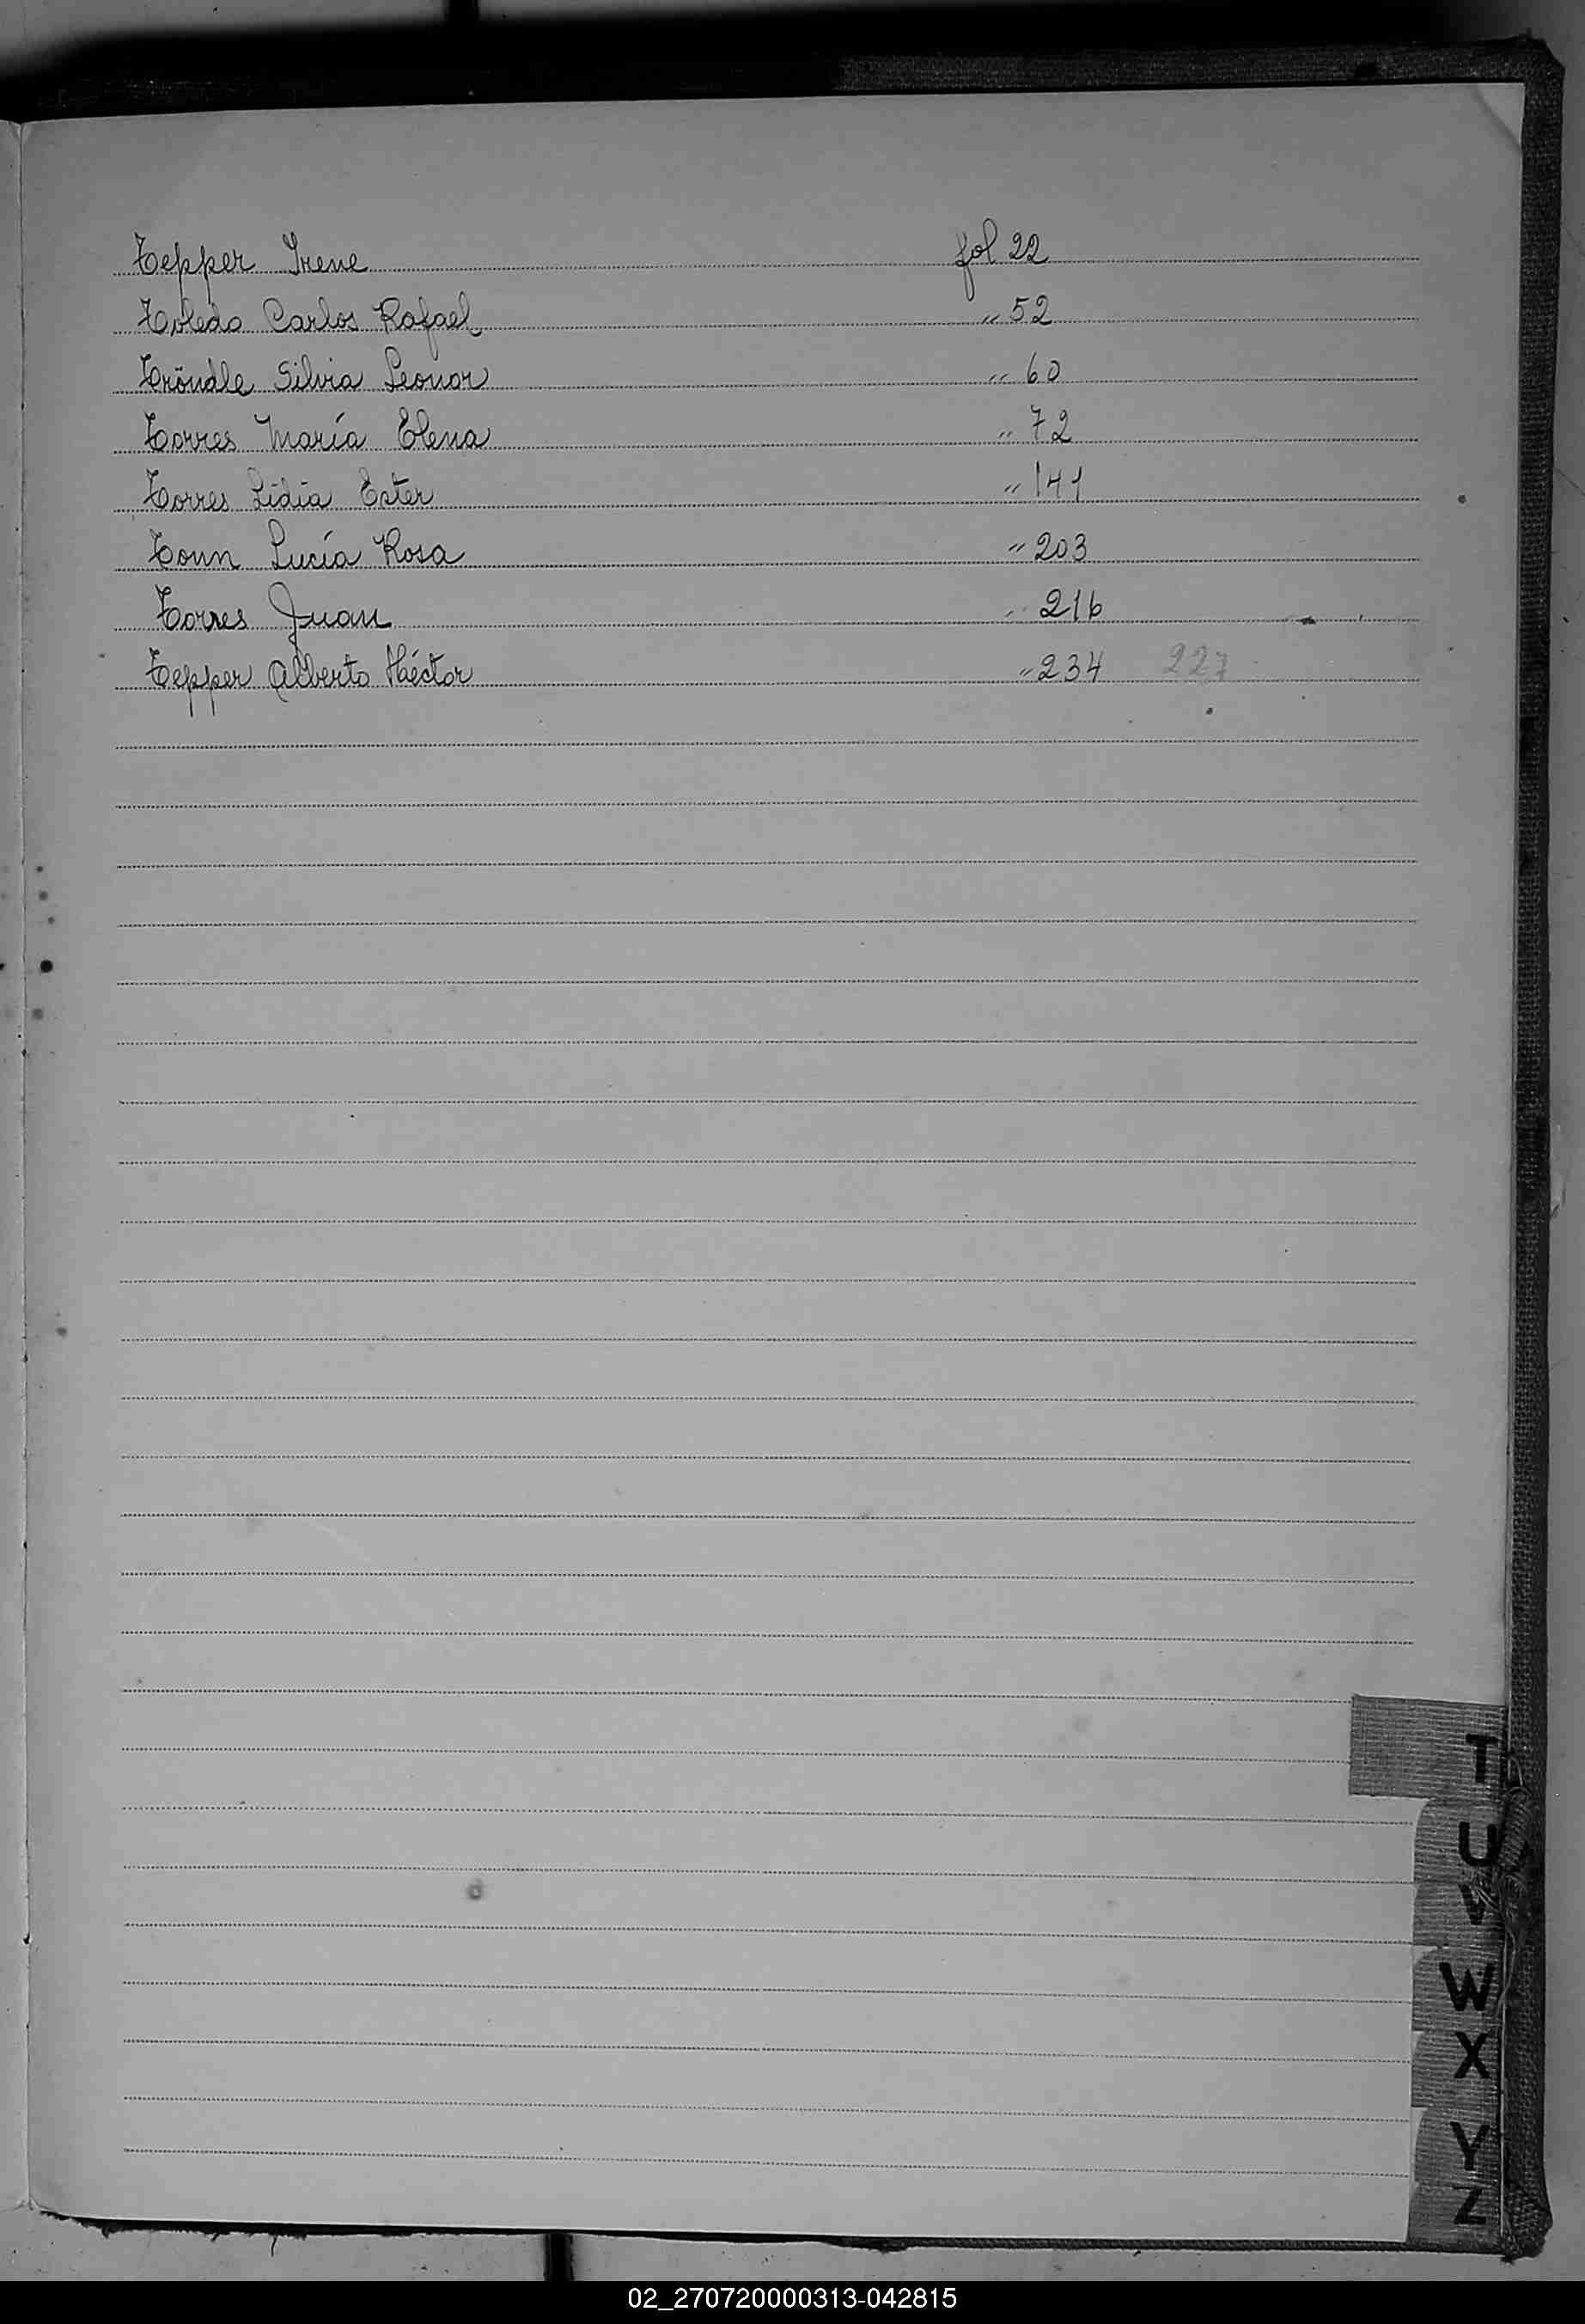 Tepper Irene fol 22
Toledo Carlos Rafael " 52
Tröndle Silvia Leonor " 60
Torres María Elena " 72
Torres Lidia Ester " 141
Toun Lucía Rosa " 203
Torres Juan " 216
Tepper Alberto Héctor " 234 227
T
U
V
W
X
Y
Z
02_270720000313-042815